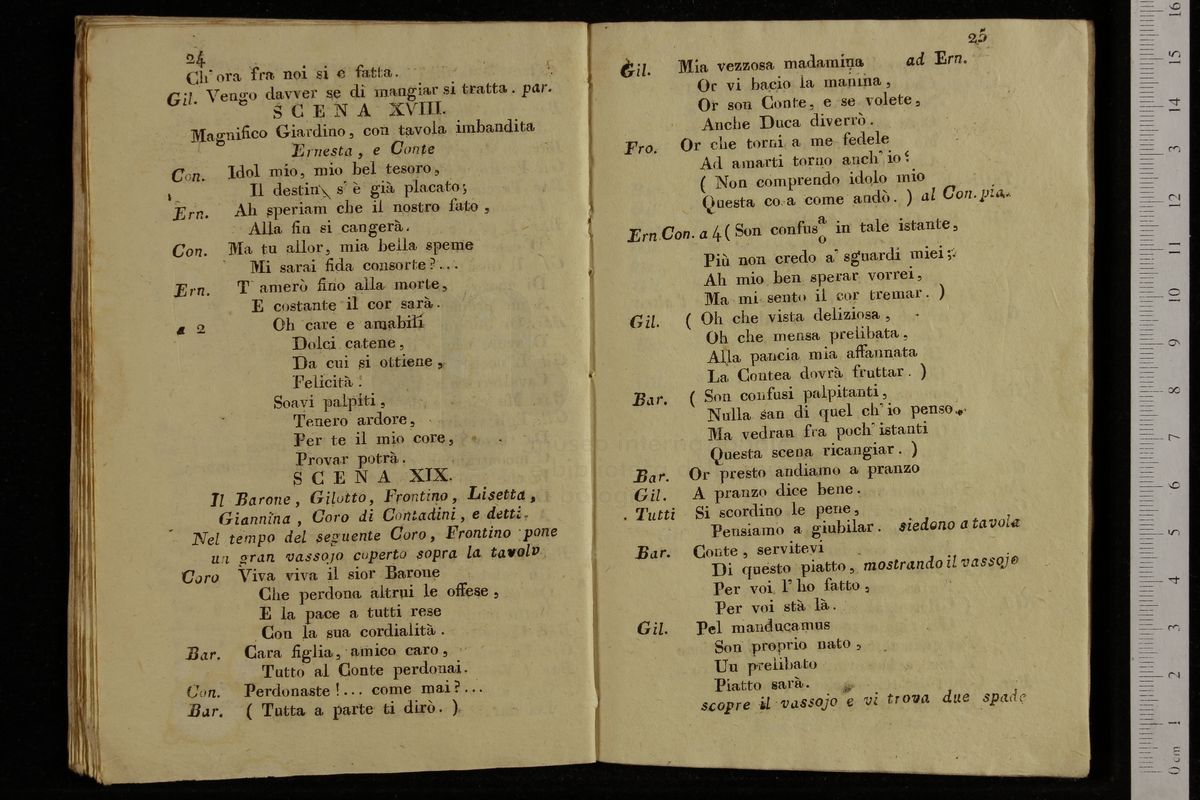 24
Ch' ora fra noi si e fatta.
Gil. Vengo davver se di mangiar si tratta. par.
SCENA XVIII.
Magnifico Giardino, con tavola imbandita
Ernesta, e Conte
Con. Idol mio, mio bel tesoro,
Il destin s' è già placato;
Ern. Ah speriam che il nostro fato,
Alla fin si cangerà.
Con. Ma tu allor, mia bella speme
Mi sarai fida consorte?...
Ern. T' amerò fino alla morte,
E costante il cor sarà.
a 2 Oh care e amabili
Dolci catene,
Da cui si ottiene,
Felicità!
Soavi palpiti,
Tenero ardore,
Per te il mio core,
Provar potrà.
SCENA XIX.
Il Barone, Gilotto, Frontino, Lisetta,
Giannina, Coro di Contadini, e detti.
Nel tempo del seguente Coro, Frontino pone
un gran vassojo coperto sopra la tavolo
Coro Viva viva il sior Barone
Che perdona altrui le offese,
E la pace a tutti rese
Con la sua cordialità.
Bar. Cara figlia, amico caro,
Tutto al Conte perdonai.
Con. Perdonaste!... come mai?...
Bar. ( Tutta a parte ti dirò. )
25
Gil. Mia vezzosa madamina ad Ern.
Or vi bacio la manina,
Or son Conte, e se volete,
Anche Duca diverrò.
Fro. Or che torni a me fedele
Ad amarti torno anch' io:
( Non comprendo idolo mio
Questa co a come andò. ) al Con. pia.
Ern. Con. a 4 ( Son confusa/o in tale istante,
Più non credo a' sguardi miei;
Ah mio ben sperar vorrei,
Ma mi sento il cor tremar. )
Gil. ( Oh che vista deliziosa,
Oh che mensa prelibata,
Alla pancia mia affannata
La Contea dovrà fruttar. )
Bar. ( Son confusi palpitanti,
Nulla san di quel ch' io penso.
Ma vedran fra poch' istanti
Questa scena ricangiar. )
Bar. Or presto andiamo a pranzo
Gil. A pranzo dice bene.
Tutti Si scordino le pene,
Pensiamo a giubilar. siedono a tavola
Bar. Conte, servitevi
Di questo piatto, mostrando il vassojo
Per voi l' ho fatto,
Per voi stà là.
Gil. Pel manducamus
Son proprio nato,
Un prelibato
Piatto sarà.
scopre il vassojo e vi trova due spade